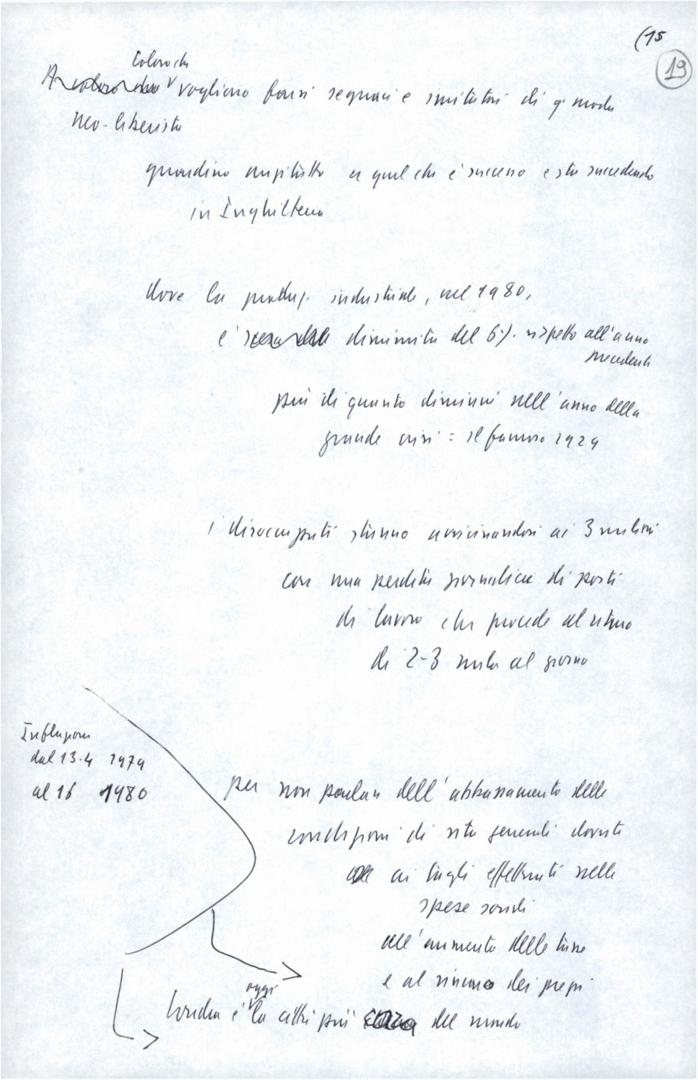 (15
19
Coloro che
A coloro che vogliono farsi seguaci e imitatori di q. moda
neo-liberista
guardino anzitutto a quel che è successo e sta succedendo
in Inghilterra
dove la produz. industriale, nel 1980,
è diminuita del 6% rispetto all'anno
precedente
più di quanto diminuì nell'anno della
grande crisi = il famoso 1929
i disoccupati stanno avvicinandosi ai 3 milioni
con una perdita giornaliera di posti
di lavoro che procede al ritmo
di 2-3 mila al giorno
Inflazione
dal 13.4 1979
al 16 1980
per non parlare dell'abbassamento delle
condizioni di vita generali dovute
ai tagli effettuati nelle
spese sociali
all'aumento delle tasse
e al rincaro dei prezzi
oggi
Londra è la città più cara del mondo